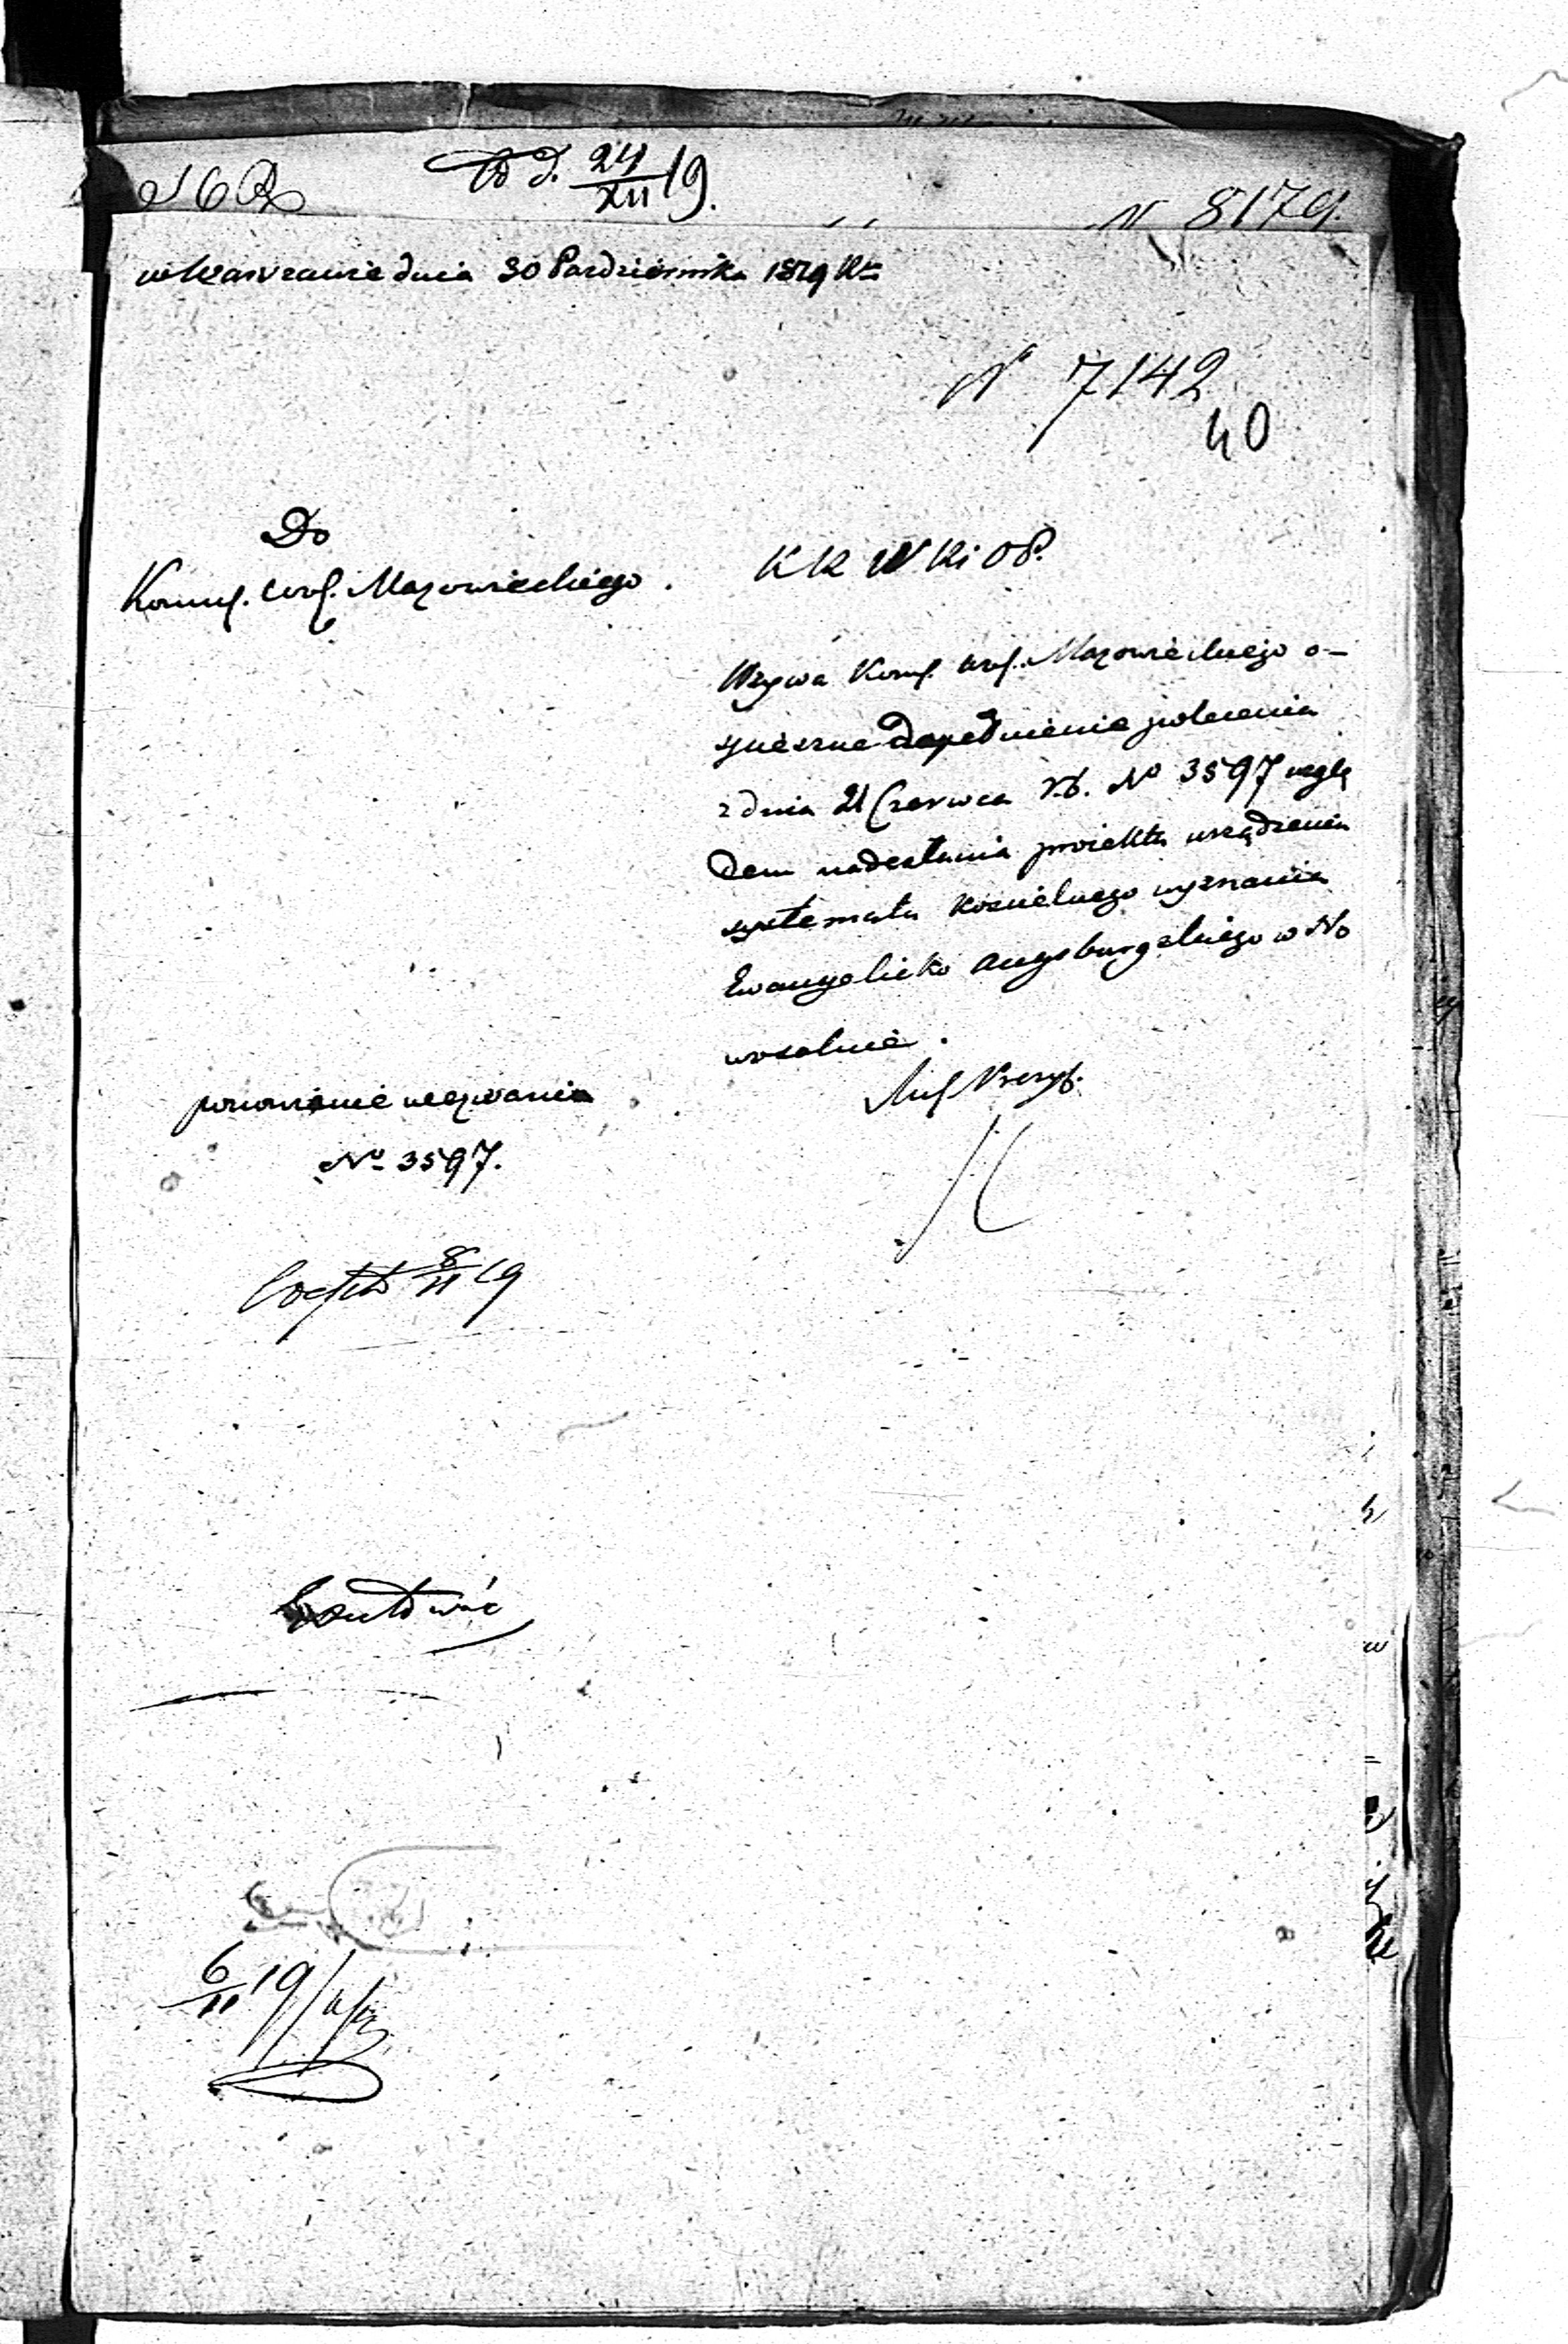 d. 24/XII 19.
N 8179.
w Warszawie dnia 30 Pazdziernika 1819 Rku
N 7142
40
Do
Komis. Woj. Mazowieckiego.
K R W R i O P.
Wzywa Komis. Woj. Mazowieckiego o-
spieszne dopełnienie polecenia
z dnia 21 Czerwca r.b. No 3597 wzglę
dem nadesłania proiektu urządzenia
systematu Koscielnego wyznania
Ewangelicko Augsburgskiego w No
wosolnie.
Min. Prezyd.
ponowienie wezwania
No 3597.
8/11 19
6/11 19